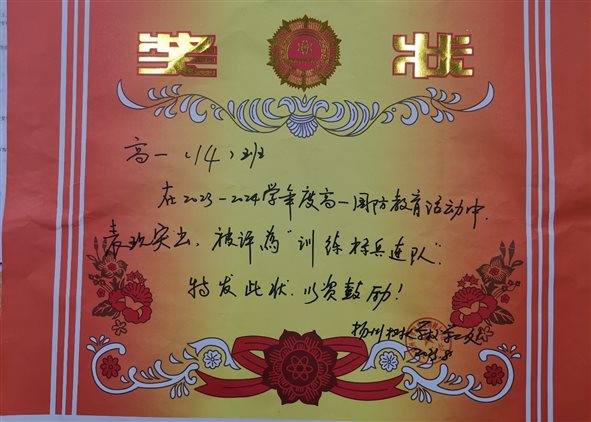 奖状
高一（14）班
在2023-2024学年度高一国防教育活动中，
表现突出，被评为“训练标兵连队”。
特发此状，以资鼓励！
扬州